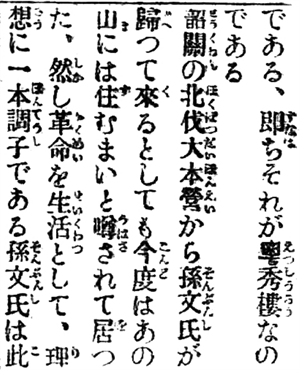 である、卽ちそれが粤秀樓なの
である
韶關の北伐大本營から孫文氏が
歸つて來るとしても今度はあの
山には住むまいと噂されて居つ
た、然し革命を生活として、理
想に一本調子である孫文氏は此